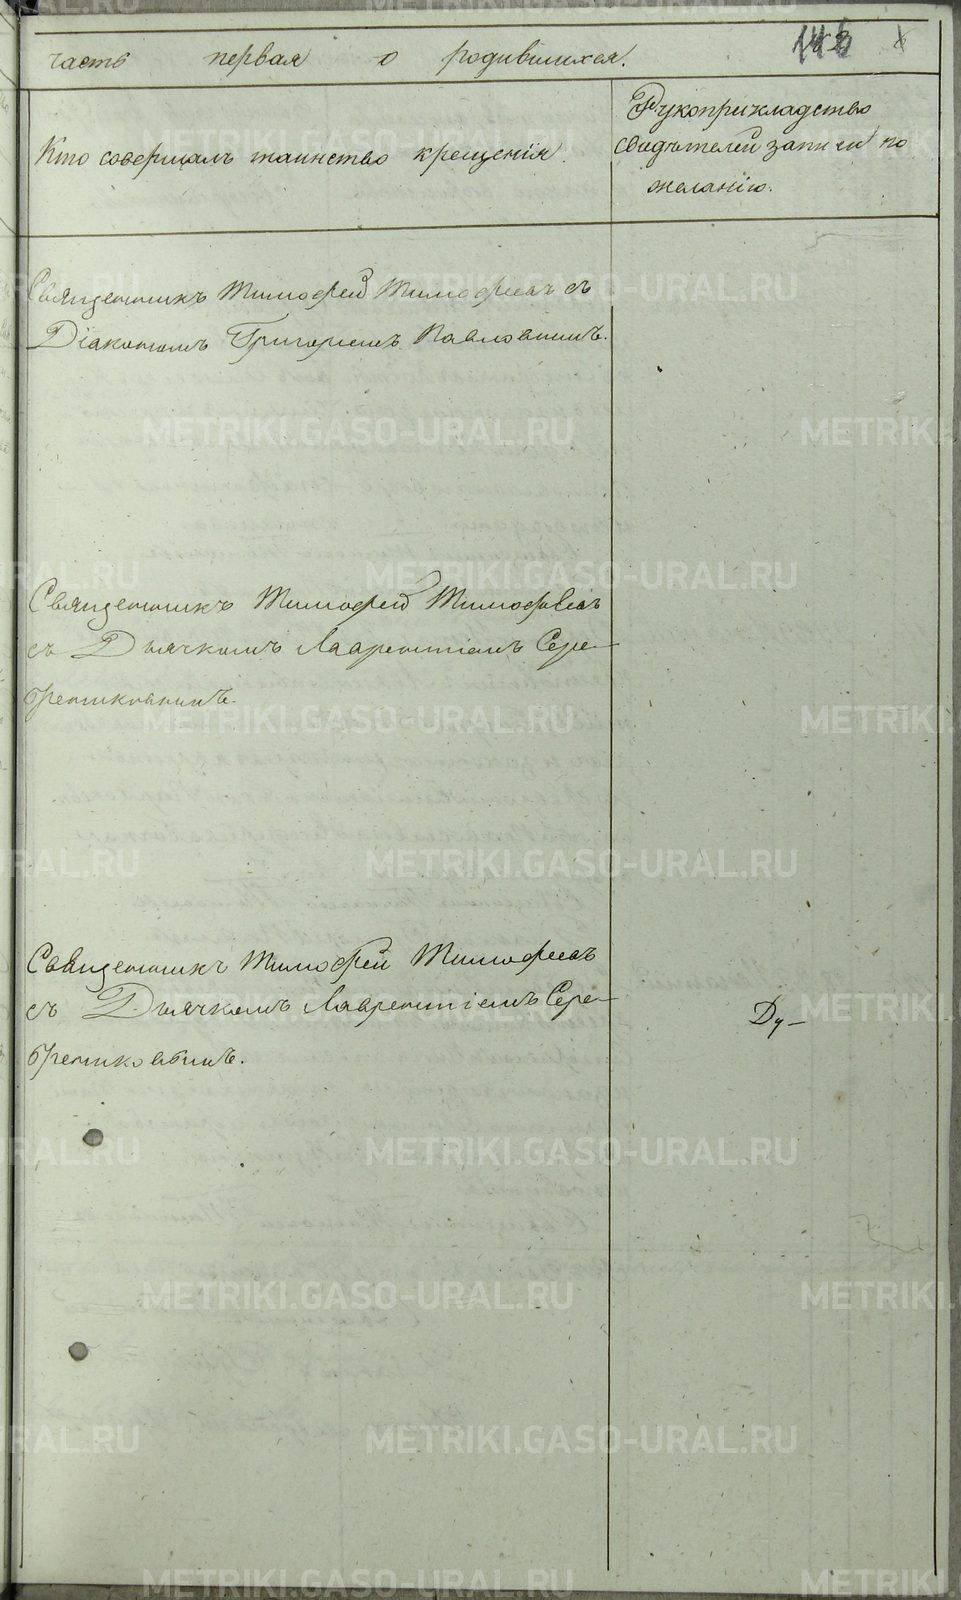 часть первая о родившихся.
Рукоприкладство
Кто совершалъ таинство крещенія.
свидѣтелей записи по
желанію.
Священникъ Тимофей Тимофеевъ съ
Діакономъ Григоріемъ Павловымъ.
Священникъ Тимофей Тимофеевъ
съ Дьячкомъ Лаврентіемъ Сере-
бренниковымъ.
Священникъ Тимофей Тимофеевъ
съ Дьячкомъ Лаврентіемъ Сере-
бренниковымъ.
Ду-
METRIKI.GASO-URAL.RU